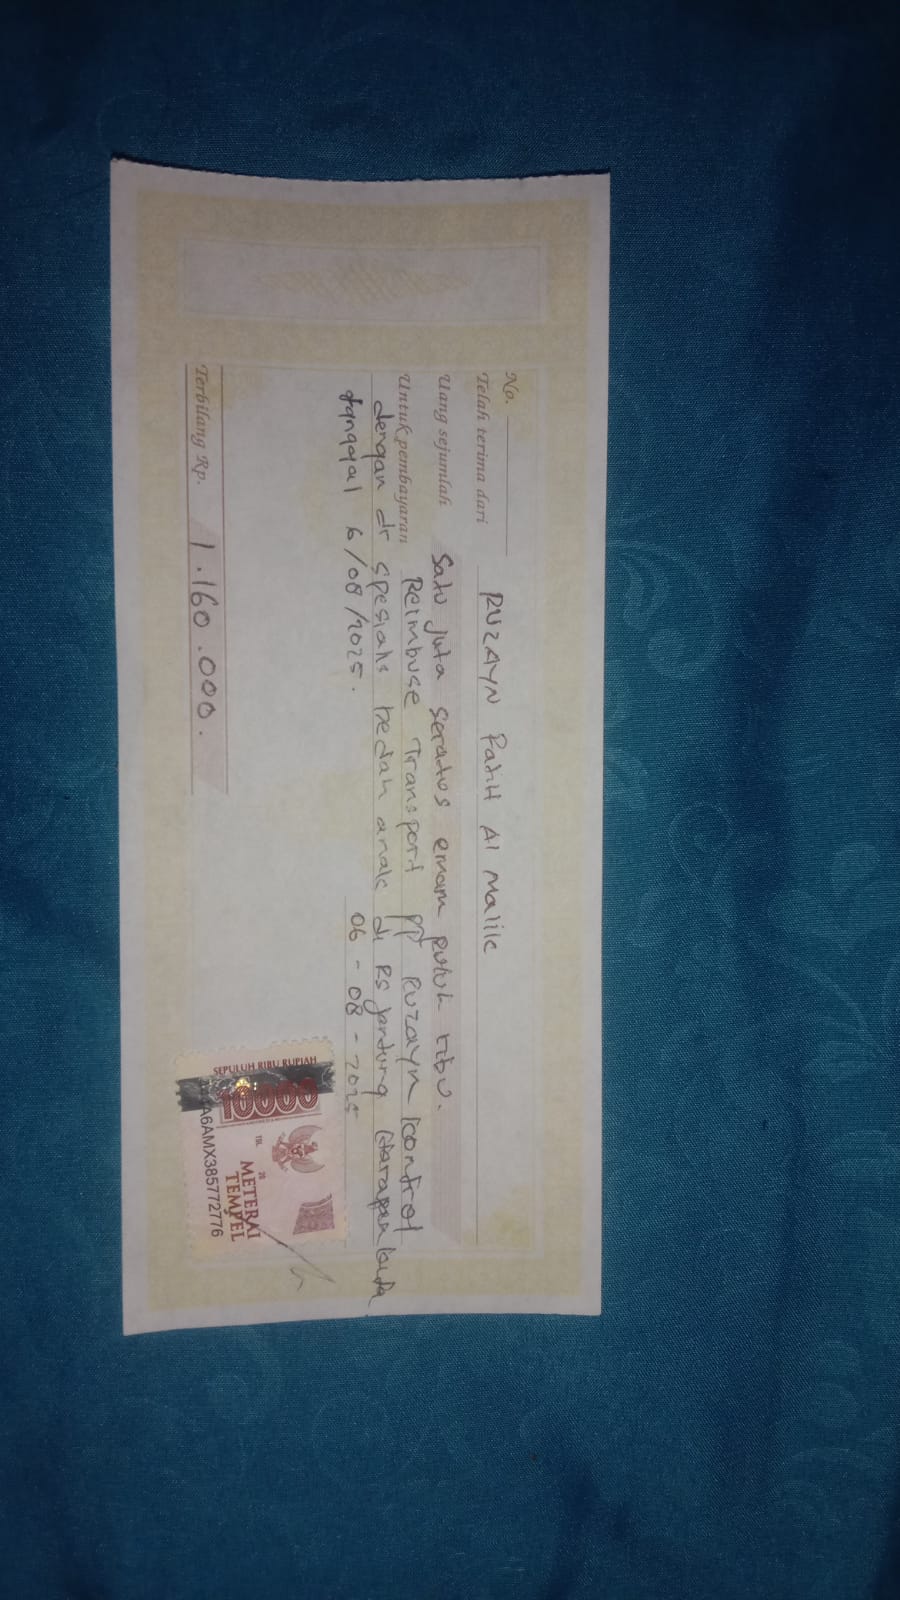 No.
Telah terima dari RUZAYN FatiH Al Malik
Uang sejumlah Satu juta seratus enam puluh ribu.
Untuk pembayaran Reimbuse Transport PP Ruzayn kontrol
dengan dr spesialis bedah anak di RS Jantung Harapan kita
tanggal 6/08/2025.
06 - 08 - 2025
Terbilang Rp. 1.160.000.
SEPULUH RIBU RUPIAH
10000
TGL. 20
METERAI
TEMPEL
A6AMX385772776